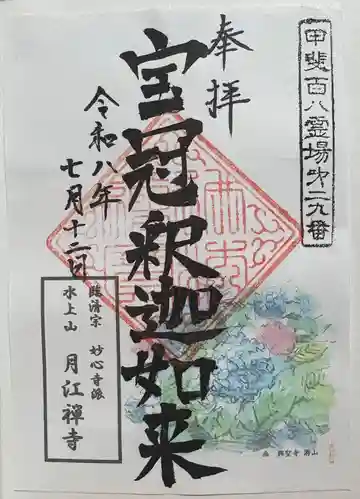 甲斐百八霊場第二九番
奉拝
宝冠釈迦如来
令和八年
七月十二日
臨済宗 妙心寺派
水上山 月江禅寺
画 興聖寺 閑山